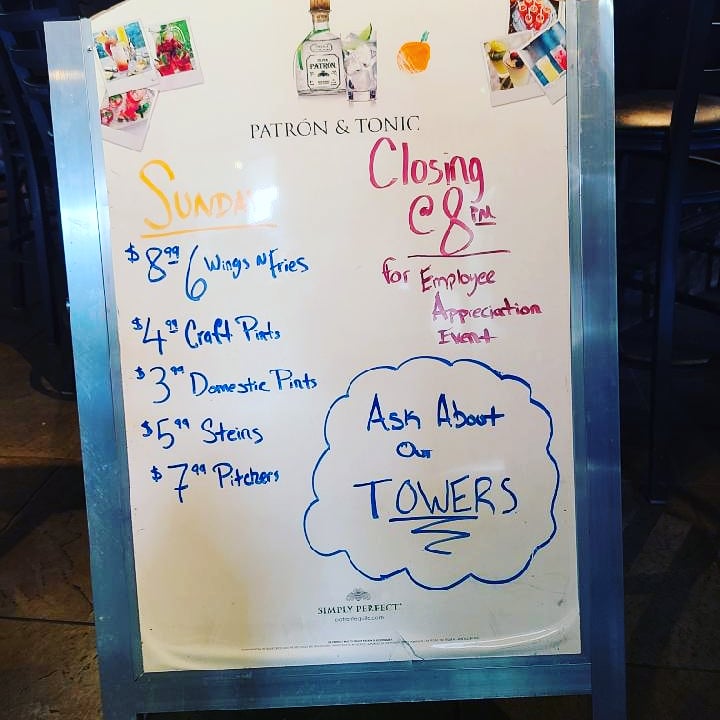 PATRÓN
PATRÓN & TONIC
SUNDAY
$8.99 6 Wings N Fries
$4.99 Craft Pints
$3.99 Domestic Pints
$5.99 Steins
$7.99 Pitchers
Closing
@ 8 PM
for Employee
Appreciation
Event
Ask About
Our
TOWERS
SIMPLY PERFECT
patrontequila.com